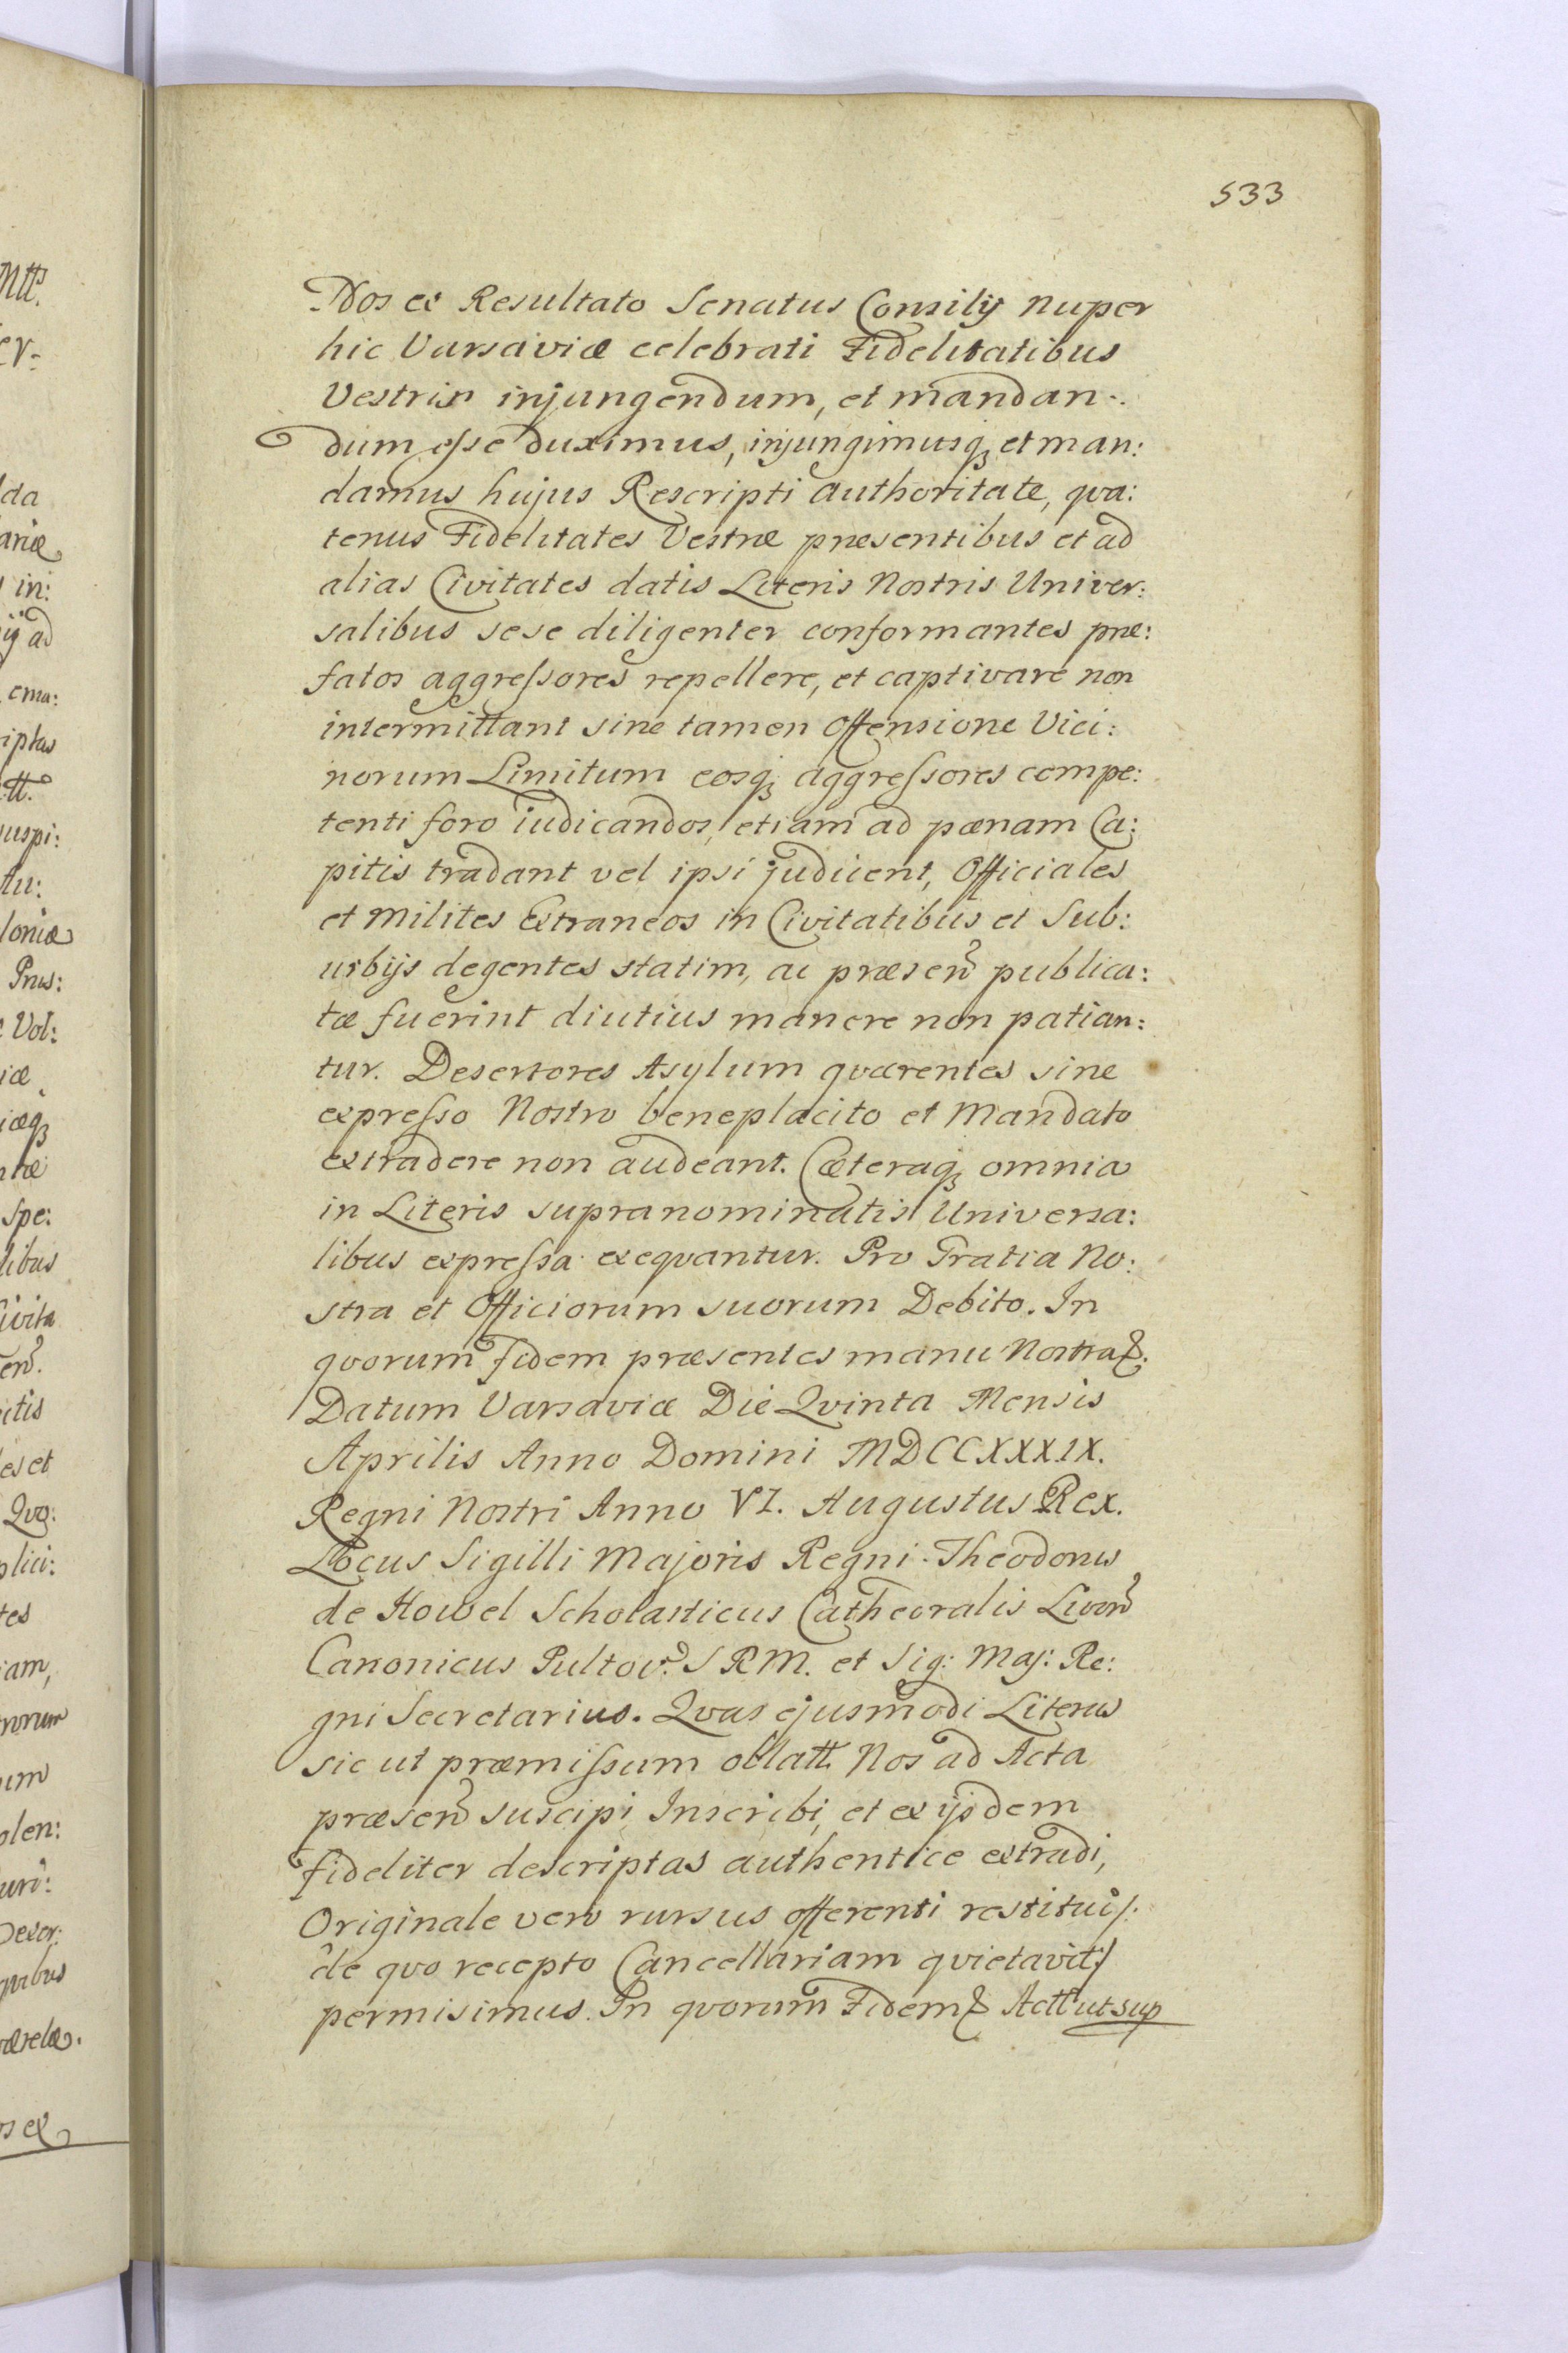 533
Nos ex Resultato Senatus Consilij nuper
hic Varsaviæ celebrati Fidelitatibus
Vestris injungendum, et mandan:
dum esse duximus, injungimusq; et man:
damus hujus Rescripti authoritate, qva:
tenus Fidelitates Vestræ præsentibus et ad
alias Civitates datis Literis Nostris Univer:
salibus sese diligenter conformantes præ:
fatos aggressores repellere, et captivare non
intermittant sine tamen offensione Vici:
norum Limitum eosq; aggressores compe:
tenti foro iudicandos, etiam ad pænam Ca:
pitis tradant vel ipsi judicent, Officiales
et Milites Extraneos in Civitatibus et Sub:
urbijs degentes statim, ac præsen publica:
tæ fuerint diutius manere non patian:
tur. Desertores Asylum qværentes sine
expresso Nostro beneplacito et Mandato
extradere non audeant. Cæteraq; omnia
in Literis supranominatis Universa:
libus expressa exeqvantur. Pro Gratia No:
stra et Officiorum suorum Debito. In
qvorum fidem præsentes manu Nostra &.
Datum Varsaviæ Die Qvinta Mensis
Aprilis Anno Domini MDCCXXXIX.
Regni Nostri Anno VI. Augustus Rex.
Locus Sigilli Majoris Regni. Theodorus
de Howel Scholasticus Cathedralis Livon
Canonicus Pultov. S R M. et Sig: Maj: Re:
gni Secretarius. Qvas ejusmodi Literas
sic ut præmissum oblatt. Nos ad Acta
præsen suscipi, Inscribi, et ex ijsdem
fideliter descriptas authentice extradi,
Originale vero rursus offerenti restitui /:
de qvo recepto Cancellariam qvietavit :/
permisimus. In qvorum Fidem & Actt ut sup